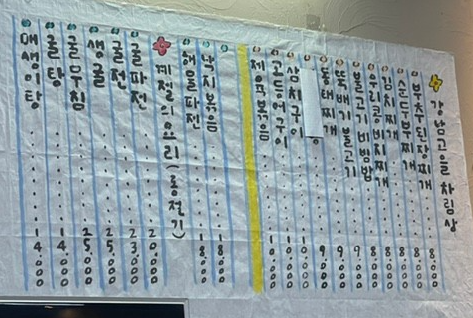 강남고을 차림상
부추된장찌개 8.000
순두부찌개 8.000
김치찌개 8.000
우렁콩비지찌개 8.000
불고기비빔밥 8.000
뚝배기불고기 9.000
동태찌개 9.000
9.000
삼치구이 10.000
고등어구이 10.000
제육볶음 10.000
낙지볶음 18.000
해물파전 18.000
계절의요리(동절기)
굴파전 20.000
굴전 23.000
생굴 25.000
굴무침 25.000
굴탕 14.000
매생이탕 14.000